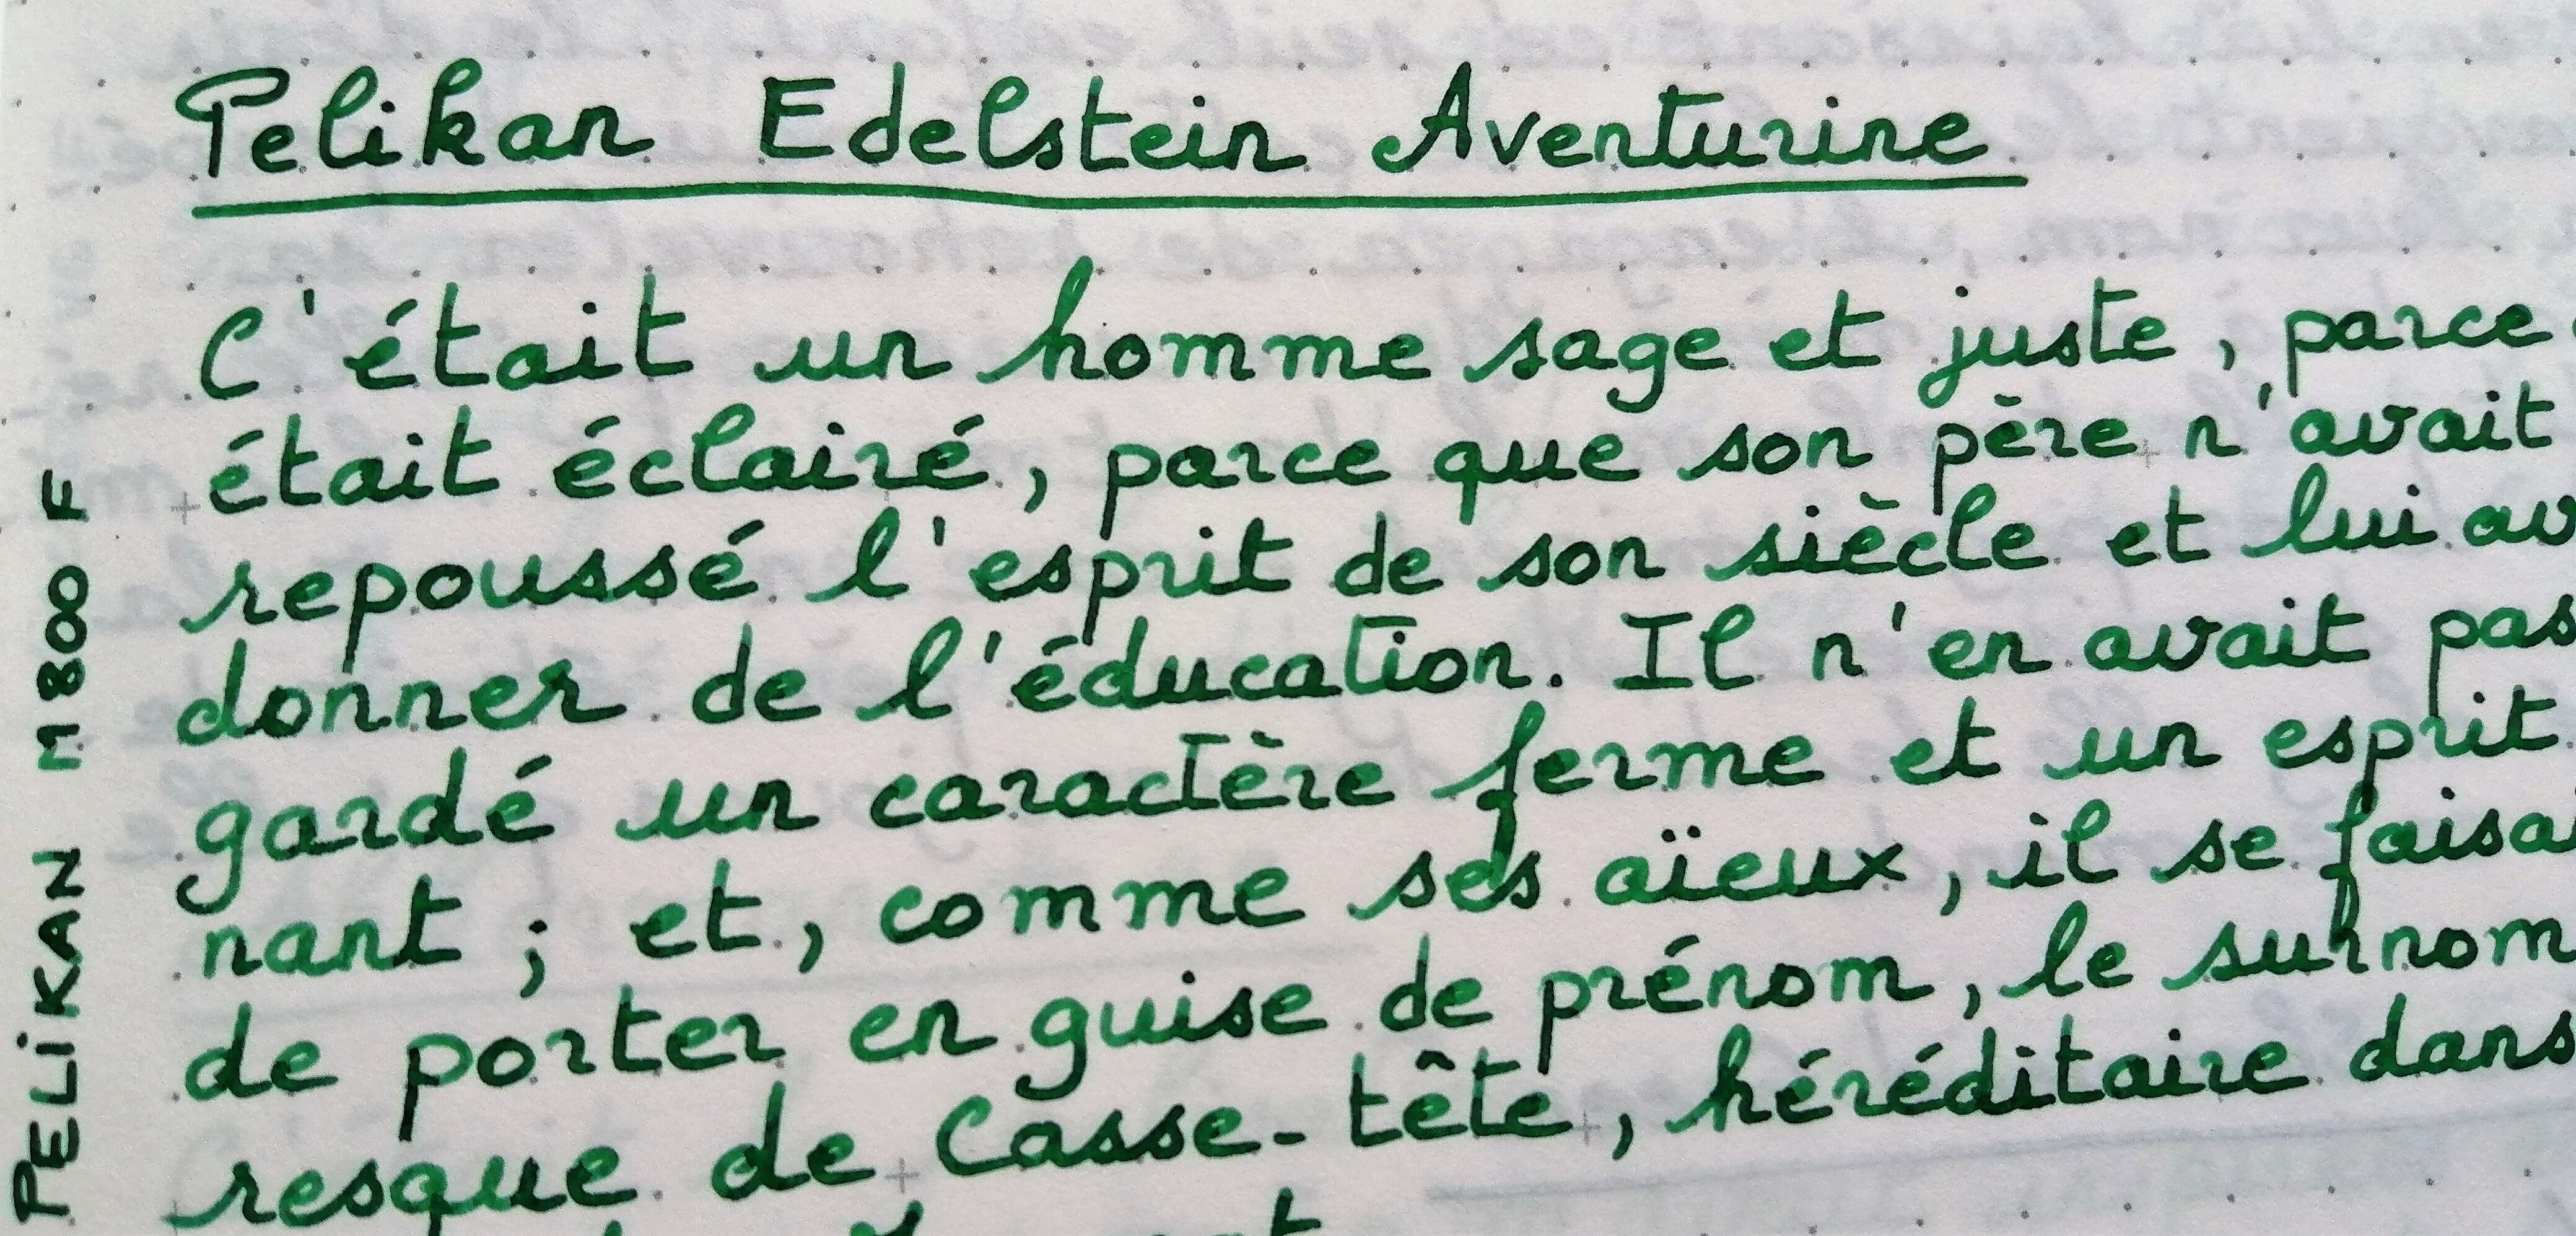 Pelikan Edelstein Aventurine
C'était un homme sage et juste, parce
était éclairé, parce que son père n'avait
repoussé l'esprit de son siècle et lui av
donner de l'éducation. Il n'en avait pas
gardé un caractère ferme et un esprit
nant ; et, comme ses aïeux, il se faisai
de porter en guise de prénom, le surnom
resque de Casse-tête, héréditaire dans
PELiKAN M800 F